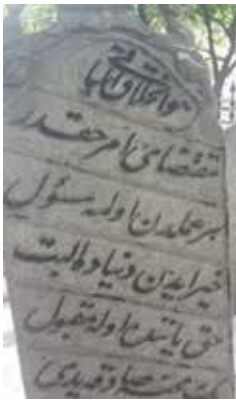 هو الخلاق الباقي
مقتضای امر حقدر
هر عملدن اوله مسئول
خیر ایدین دنیاده البت
حق یاننده اوله مقبول